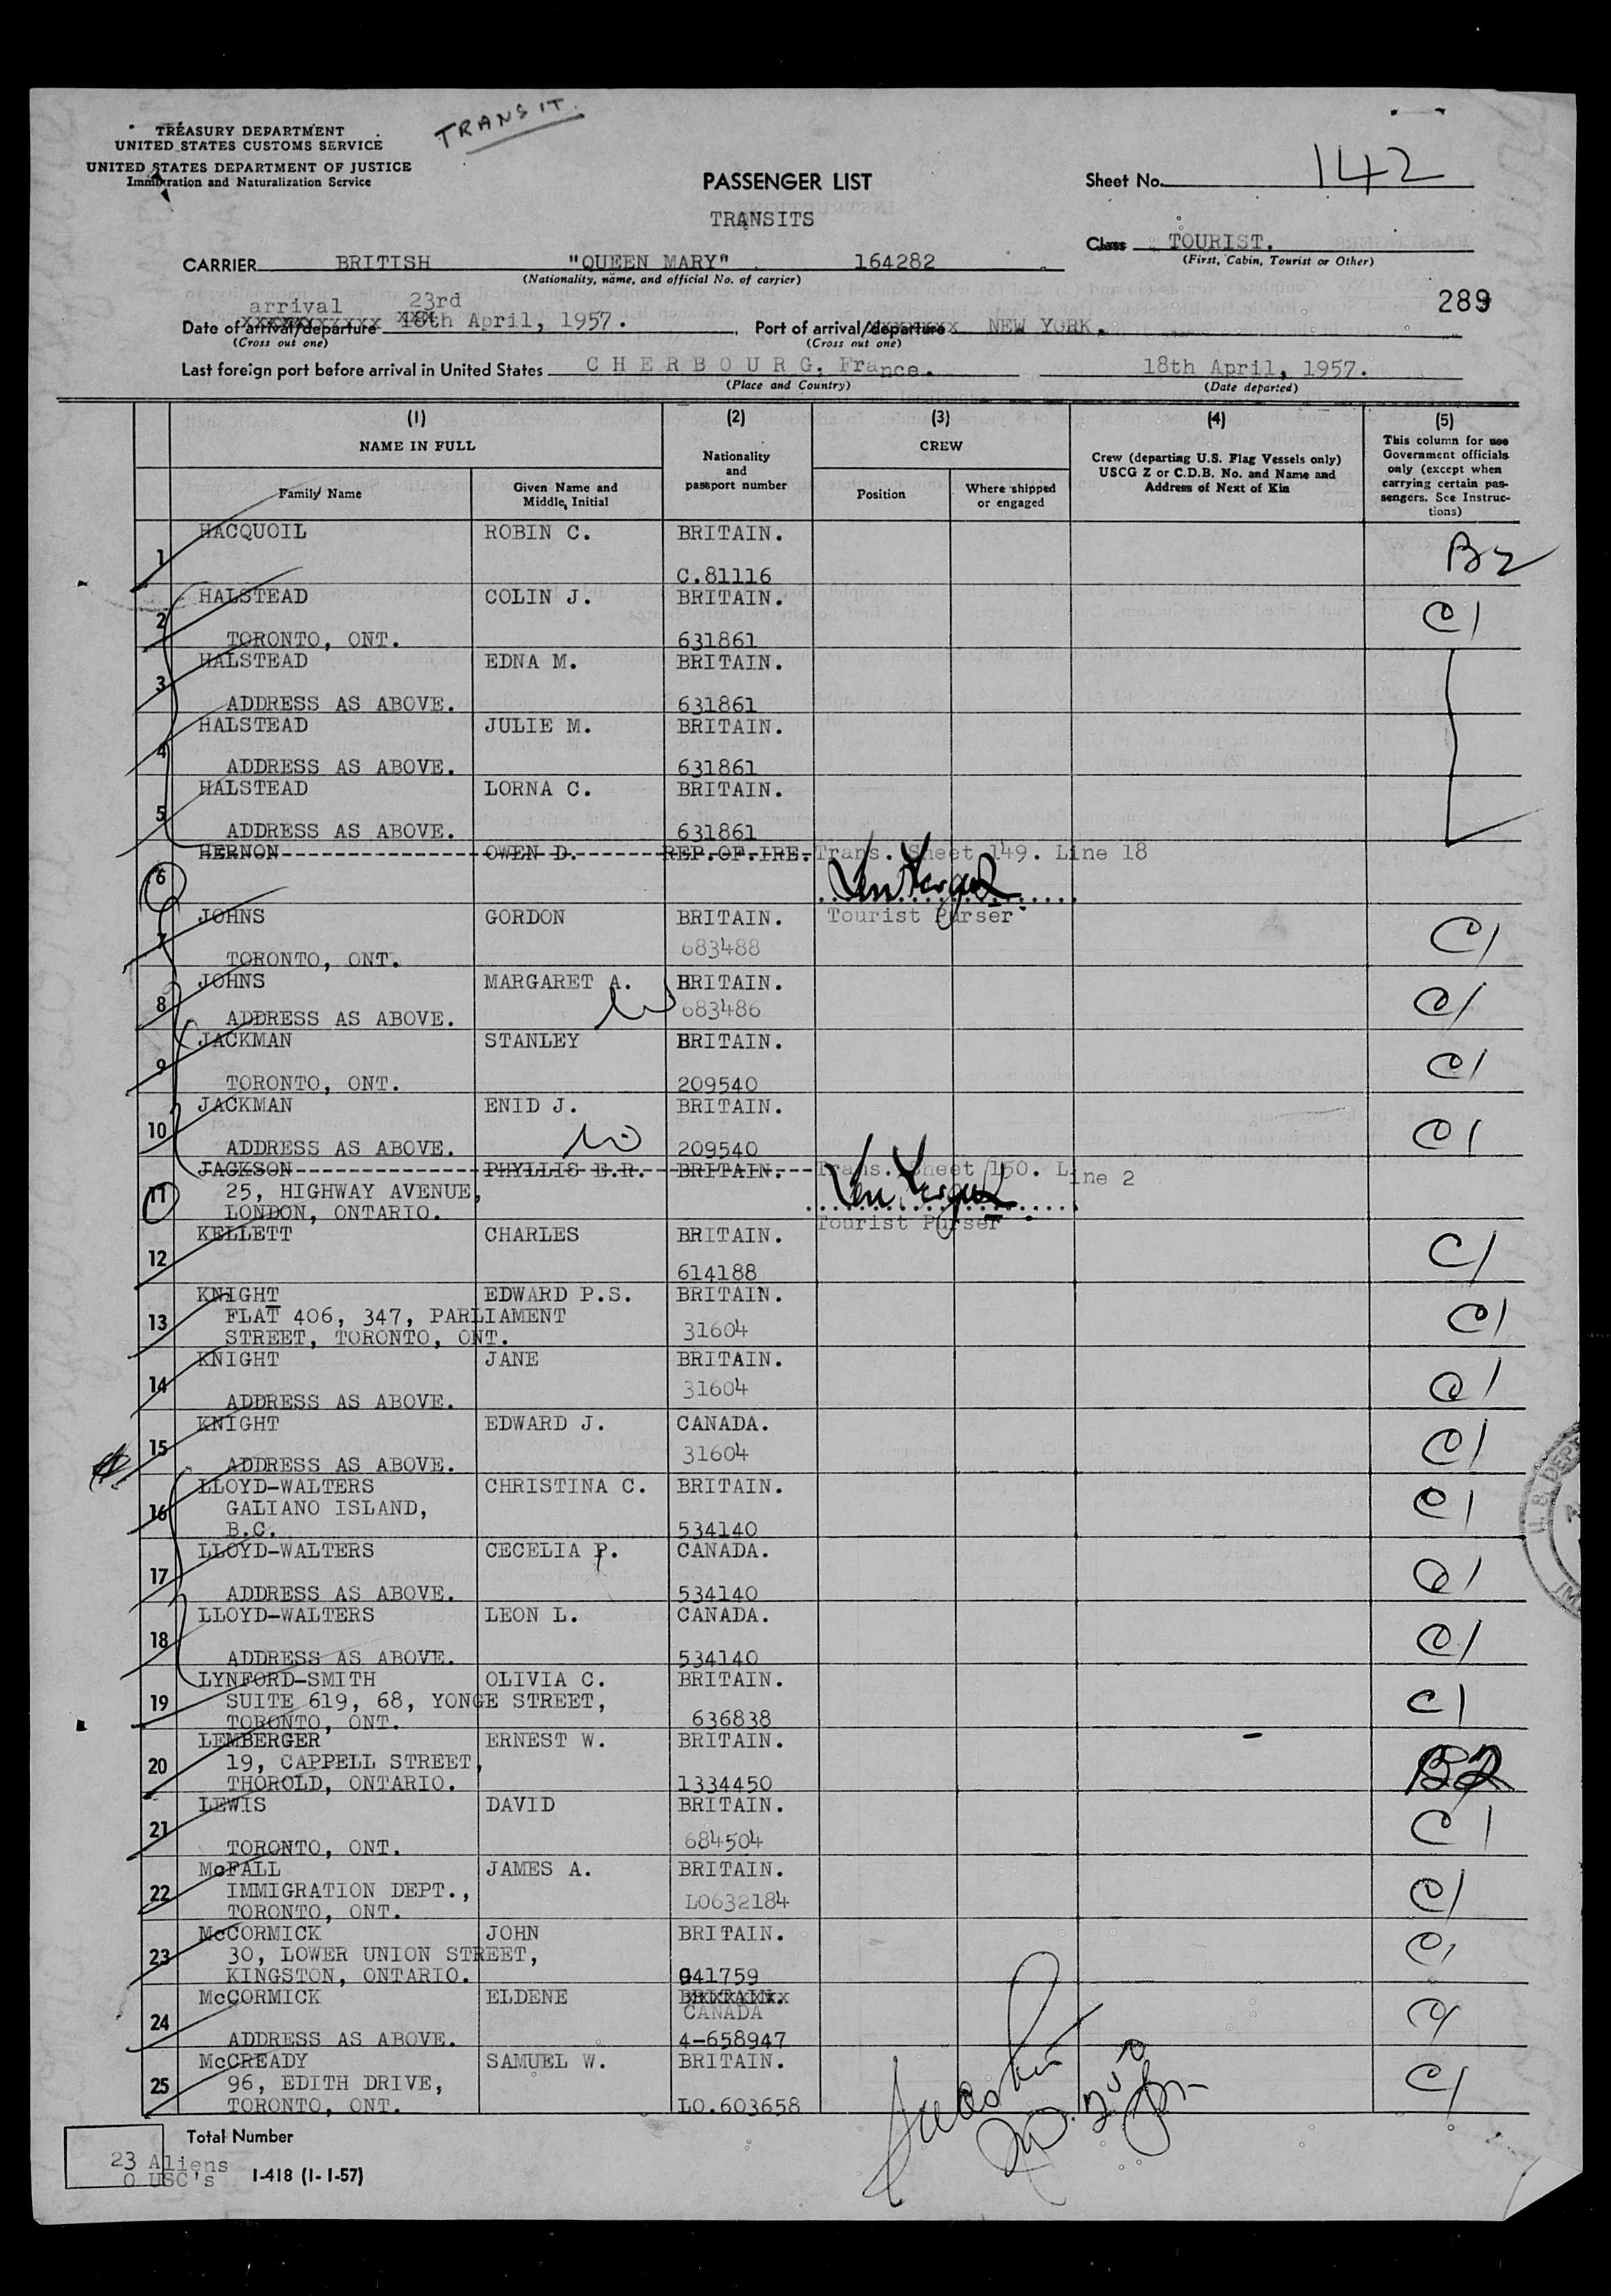 TREASURY DEPARTMENT
UNITED STATES CUSTOMS SERVICE
UNITED STATES DEPARTMENT OF JUSTICE
Immigration and Naturalization Service
TRANSIT.
PASSENGER LIST
TRANSITS
Sheet No. 142
Class TOURIST.
(First, Cabin, Tourist or Other)
CARRIER BRITISH "QUEEN MARY" 164282
(Nationality, name, and official No. of carrier)
289
arrival 23rd
Date of arrival/departure 18th April, 1957. Port of arrival/departure NEW YORK.
(Cross out one) (Cross out one)
Last foreign port before arrival in United States CHERBOURG, France. 18th April, 1957.
(Place and Country) (Date departed)
(1) (2) (3) (4) (5)
NAME IN FULL Nationality and passport number CREW Crew (departing U.S. Flag Vessels only) USCG Z or C.D.B. No. and Name and Address of Next of Kin This column for use Government officials only (except when carrying certain passengers. See Instructions)
Family Name Given Name and Middle Initial Position Where shipped or engaged
1 HACQUOIL ROBIN C. BRITAIN. B2
C.81116
2 HALSTEAD COLIN J. BRITAIN. C1
TORONTO, ONT. 631861
3 HALSTEAD EDNA M. BRITAIN.
ADDRESS AS ABOVE. 631861
4 HALSTEAD JULIE M. BRITAIN.
ADDRESS AS ABOVE. 631861
5 HALSTEAD LORNA C. BRITAIN.
ADDRESS AS ABOVE. 631861
6 HERNON OWEN D. REP.OF.IRE. Trans. Sheet 149. Line 18
Tourist Purser
7 JOHNS GORDON BRITAIN. C1
TORONTO, ONT. 683488
8 JOHNS MARGARET A. BRITAIN. C1
ADDRESS AS ABOVE. 683486
9 JACKMAN STANLEY BRITAIN. C1
TORONTO, ONT. 209540
10 JACKMAN ENID J. BRITAIN. C1
ADDRESS AS ABOVE. 209540
11 JACKSON PHYLLIS E.R. BRITAIN. Trans. Sheet 150. Line 2
25, HIGHWAY AVENUE,
LONDON, ONTARIO.
Tourist Purser
12 KELLETT CHARLES BRITAIN. C1
614188
13 KNIGHT EDWARD P.S. BRITAIN. C1
FLAT 406, 347, PARLIAMENT
STREET, TORONTO, ONT. 31604
14 KNIGHT JANE BRITAIN. C1
ADDRESS AS ABOVE. 31604
15 KNIGHT EDWARD J. CANADA. C1
ADDRESS AS ABOVE. 31604
16 LLOYD-WALTERS CHRISTINA C. BRITAIN. C1
GALIANO ISLAND,
B.C. 534140
17 LLOYD-WALTERS CECELIA P. CANADA. C1
ADDRESS AS ABOVE. 534140
18 LLOYD-WALTERS LEON L. CANADA. C1
ADDRESS AS ABOVE. 534140
19 LYNFORD-SMITH OLIVIA C. BRITAIN. C1
SUITE 619, 68, YONGE STREET,
TORONTO, ONT. 636838
20 LEMBERGER ERNEST W. BRITAIN. B2
19, CAPPELL STREET,
THOROLD, ONTARIO. 1334450
21 LEWIS DAVID BRITAIN. C1
TORONTO, ONT. 684504
22 McFALL JAMES A. BRITAIN. C1
IMMIGRATION DEPT.,
TORONTO, ONT. L0632184
23 McCORMICK JOHN BRITAIN. C1
30, LOWER UNION STREET,
KINGSTON, ONTARIO. 941759
24 McCORMICK ELDENE BRITAIN. C1
CANADA
ADDRESS AS ABOVE. 4-658947
25 McCREADY SAMUEL W. BRITAIN. C1
96, EDITH DRIVE,
TORONTO, ONT. LO.603658
Total Number
23 Aliens
0 USC's
I-418 (1-1-57)